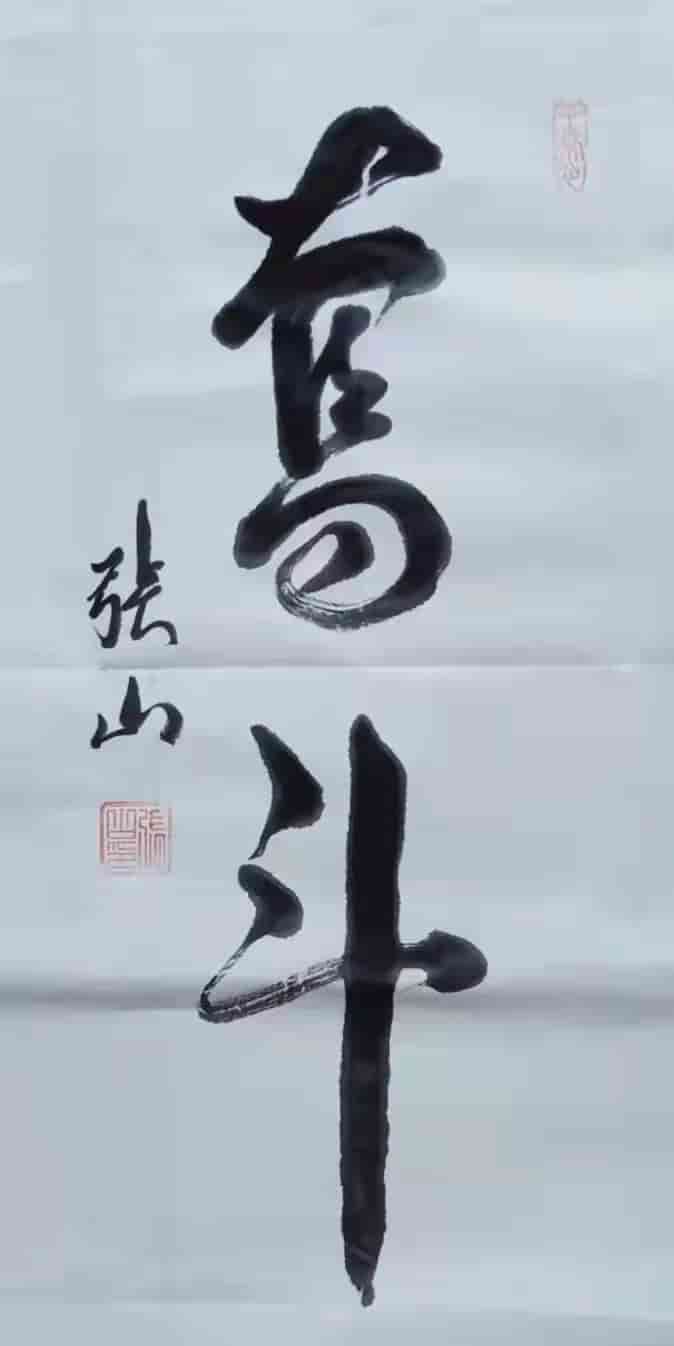 奮斗
張山